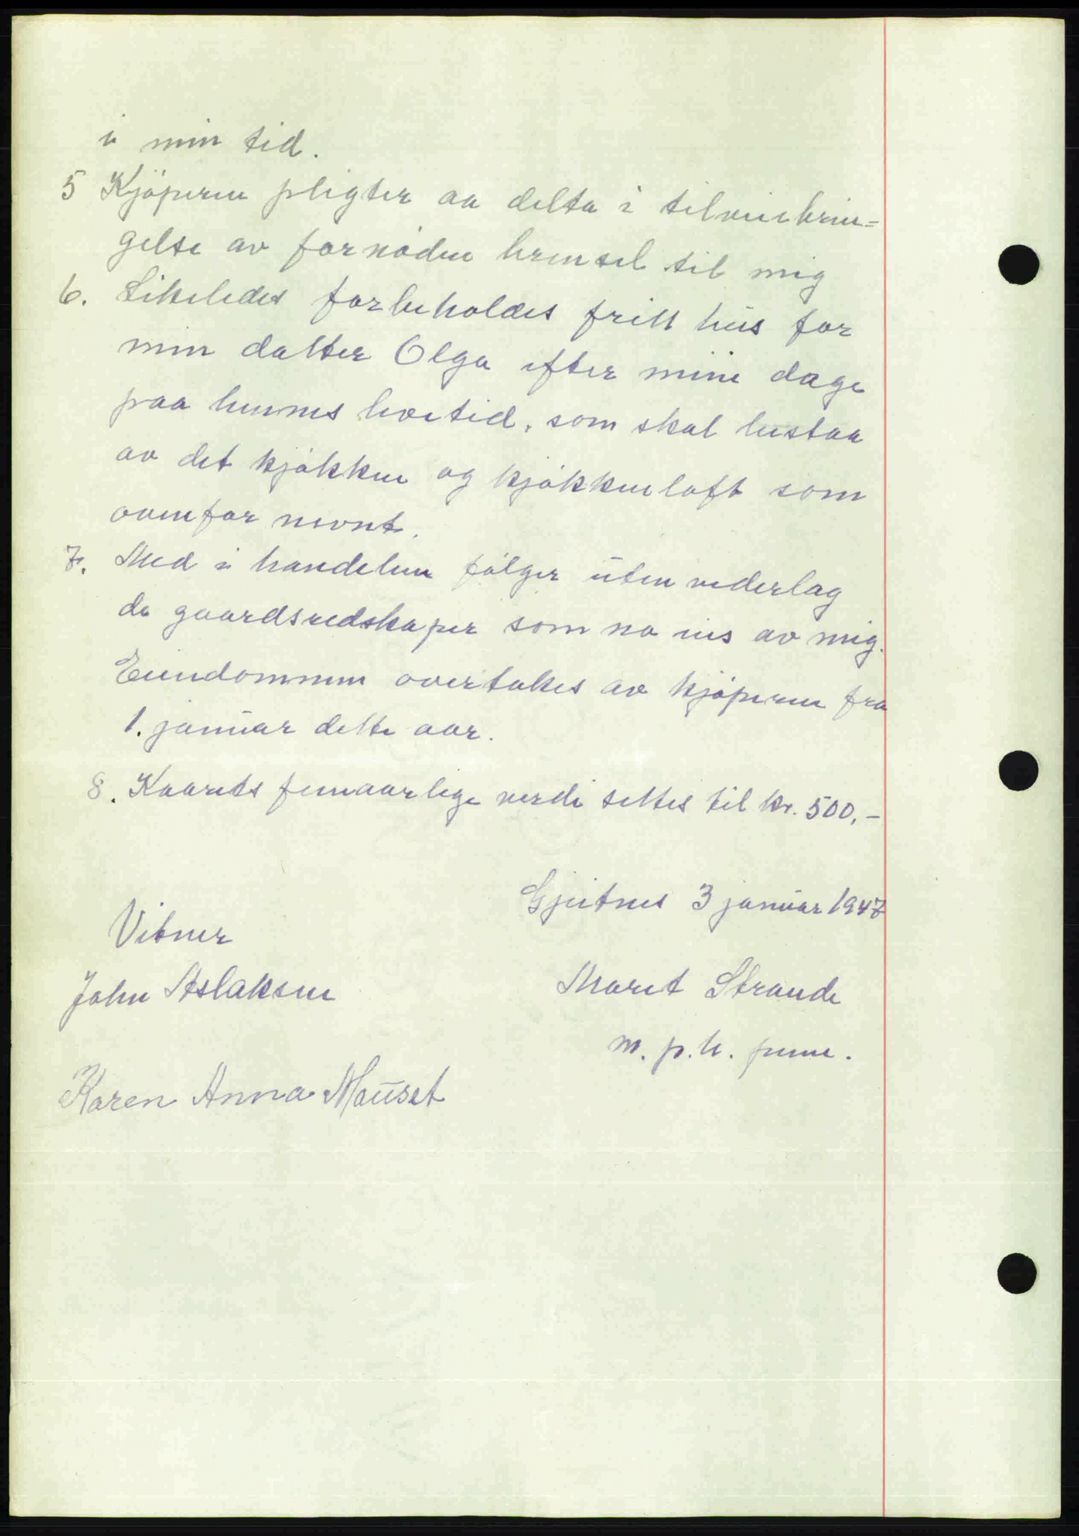 i min tid.
5 Kjøperen pligter aa delta i tilveiebrin=
gelse av fornøden brensel til mig
6. Likeledes forbeholdes fritt hus for
min datter Olga efter mine dage
paa hennes levetid, som skal bestaa
av det kjøkken og kjøkkenloft som
ovenfor nevnt.
7. Med i handelen følger uten vederlag
de gaardsredskaper som no eies av mig.
Eiendommen overtakes av kjøperen fra
1. januar dette aar.
8. Kaarets femaarlige verdi settes til kr. 500,-
Gjeitnes 3 januar 1947
Vitner
John Aslaksen
Marit Strande
m. p. h. penn.
Karen Anna Mauset